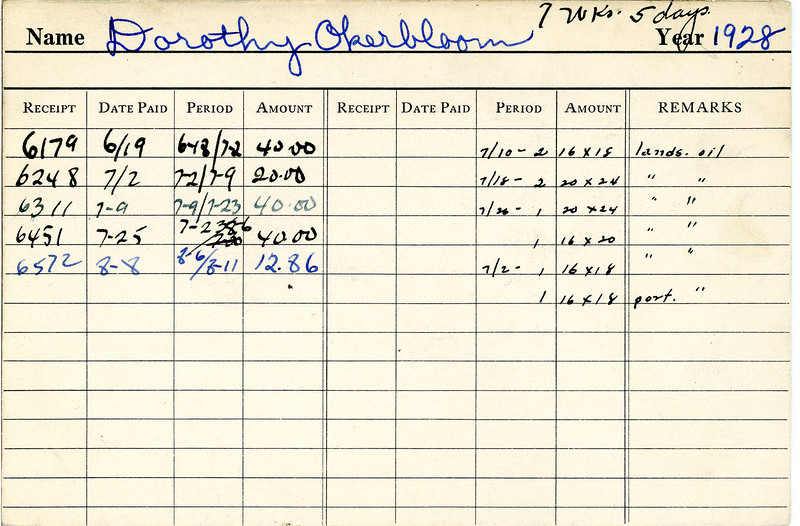 7 Wks. 5 days.
Name Dorothy Okerbloom Year 1928
RECEIPT DATE PAID PERIOD AMOUNT RECEIPT DATE PAID PERIOD AMOUNT REMARKS
6179 6/19 6-18/7-2 40.00 7/10- 2 16 x 18 lands. oil
6248 7/2 7-2/7-9 20.00 7/18- 2 20 x 24 " "
6311 7-9 7-9/7-23 40.00 7/26- 1 20 x 24 " "
6451 7-25 7-23 8-6 40.00 1 16 x 20 " "
6572 8-8 8-6/8-11 12.86 7/2- 1 16 x 18 " "
1 16 x 18 port. "